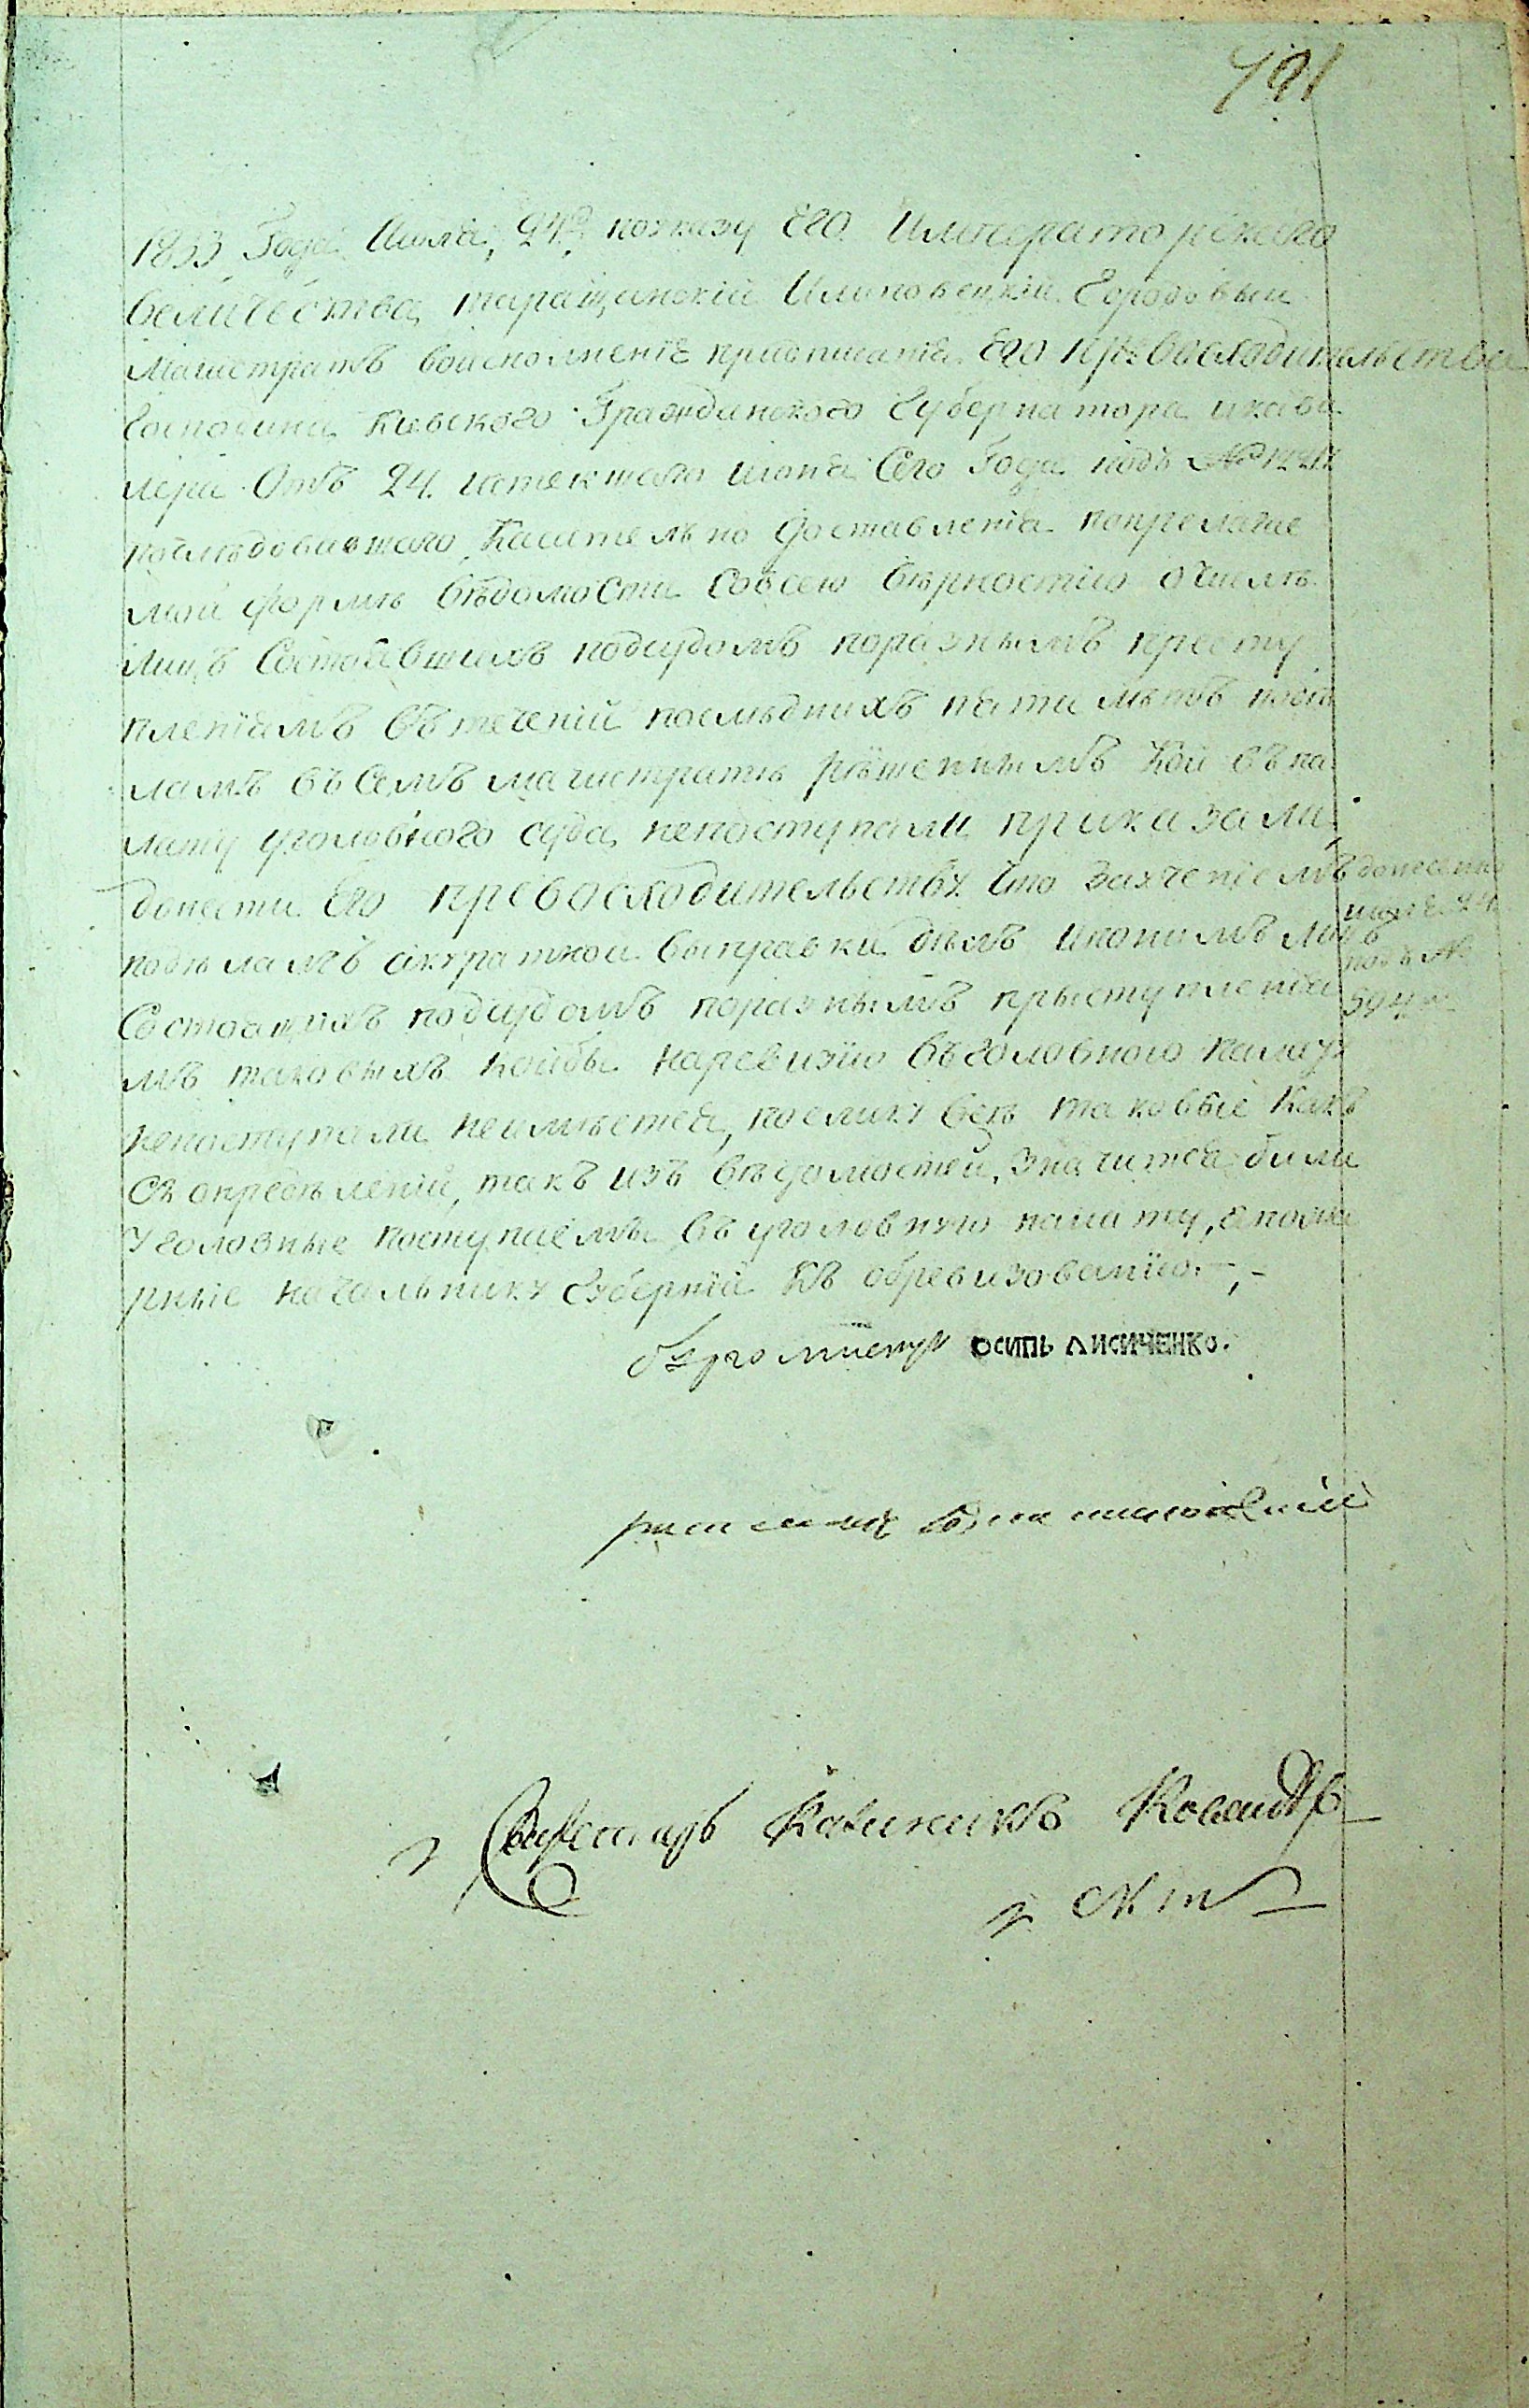 191
1833 Года Июля, 24го поуказу Его Императорскаго
величества, таращанский Илиповецкий Городовый
Магистратъ воисполнение придписания Его превосходительства
Господина Киевского Гражданского Губернатора икава
лера Отъ 24. истекшаго июня Сего Года подъ №
последовавшего Касательно доставления поприлагае
мой форме ведомости Совсею верностию очисле
лицъ Состоявшихъ подсудомъ поразнымъ престу
плениямъ Втечений последнихъ пяти летъ поде
ламъ въ Семъ магистрате решеннымъ Кои въ па
лату уголовного суда, непоступали приказали,
донести Его превосходительству Что Заучениемъ
поделамъ акуратной выправки делъ ипонимъ лицъ
Состоящихъ подсудомъ поразнымъ преступления
мъ таковыхъ койбы наревизию въголовною палату
непоступали неимеется, поелику все таковые Какъ
съ определений, такъ изъ ведомостей, значится были
Уголовные поступаемы въ уголовную палату, а
рные начальнику Губернии Къ обревизованию.—,–
донесенно
июля 24
подъ №
бургомистръ ОСИПЬ ЛИСИЧЕНКО.
ратманъ
Секретарь